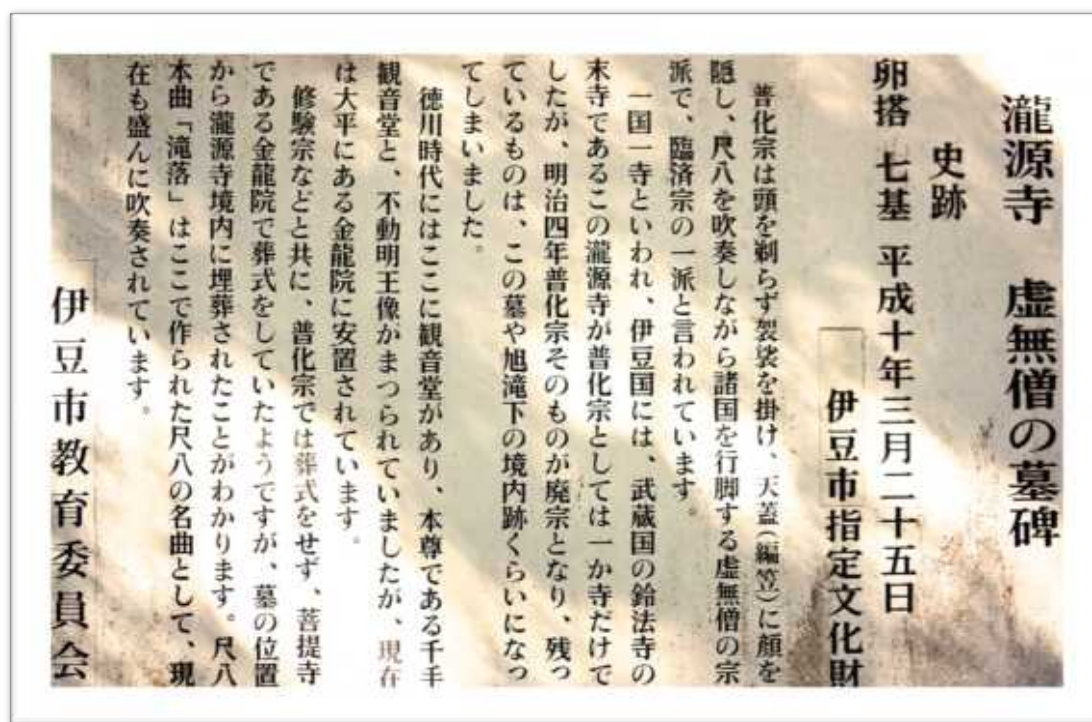 瀧源寺　虚無僧の墓碑
史跡
卵搭　七基　平成十年三月二十五日
伊豆市指定文化財
普化宗は頭を剃らず袈裟を掛け、天蓋(編笠)に顔を
隠し、尺八を吹奏しながら諸国を行脚する虚無僧の宗
派で、臨済宗の一派と言われています。
一国一寺といわれ、伊豆国には、武蔵国の鈴法寺の
末寺であるこの瀧源寺が普化宗としては一か寺だけで
したが、明治四年普化宗そのものが廃宗となり、残っ
ているものは、この墓や旭滝下の境内跡くらいになっ
てしまいました。
徳川時代にはここに観音堂があり、本尊である千手
観音堂と、不動明王像がまつられていましたが、現在
は大平にある金龍院に安置されています。
修験宗などと共に、普化宗では葬式をせず、菩提寺
である金龍院で葬式をしていたようですが、墓の位置
から瀧源寺境内に埋葬されたことがわかります。尺八
本曲「滝落」はここで作られた尺八の名曲として、現
在も盛んに吹奏されています。
伊豆市教育委員会